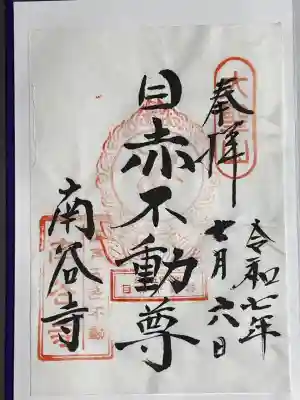 奉拝
令和七年
七月六日
目赤不動尊
南谷寺